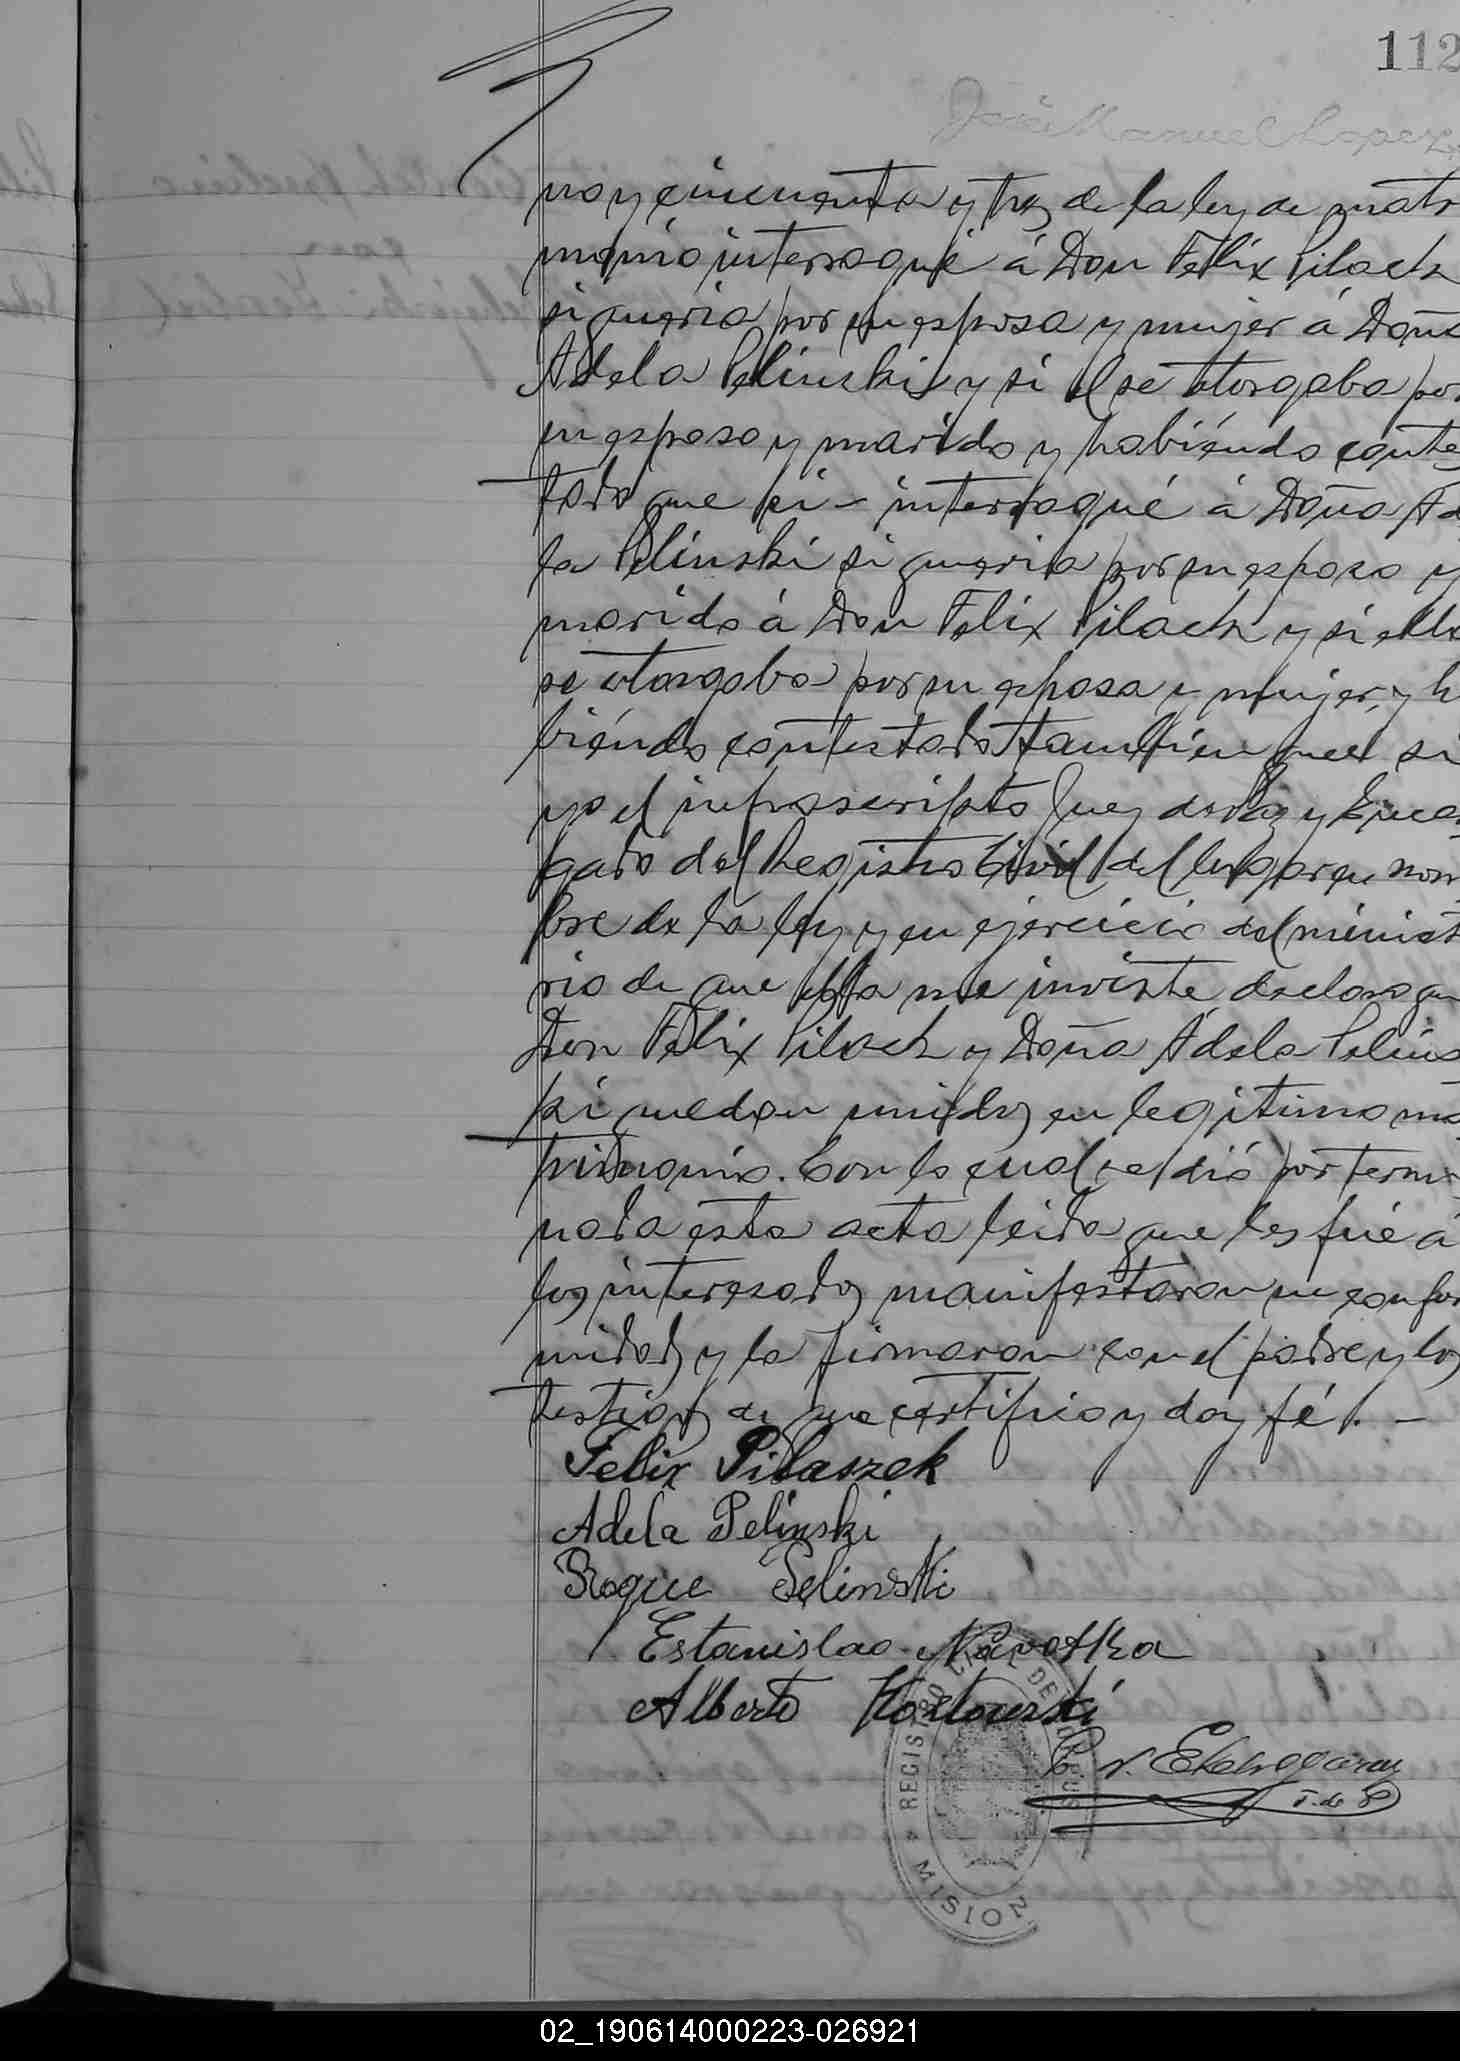 112
José Manuel Lopez
no y cincuenta y tres de la ley de matr
monio interrogué á Don Felix Pilach
si queria por su esposa y mujer á Doña
Adela Pelinski y si el se otorgaba por
su esposo y marido y habiéndo contes
tado que si - interrogué á Doña Ad
la Pelinski si queria por su esposo y
marido á Don Felix Pilach y si ella
se otorgaba por su esposa y mujer, y h
biéndo contestado tambien que si
yo el infrascripto Juez de Paz y Encar
gado del Registro Civil del lugar en nom
bre de la ley y en ejercicio del minist
rio de que ella me inviste declaro qu
Don Felix Pilach y Doña Adela Pelins
ki quedan unidos en legitimo ma
trimonio. Con lo cual se dió por termi
nada esta acta leida que les fué á
los interesados manifestaron su confor
midad y la firmaron con el padre y los
testigos de que certifico y doy fé. -
Felix Pilaszek
Adela Pelinski
Roque Pelinski
Estanislao Navotka
Alberto Kozlowski
Etchegaray
J. de P
REGISTRO CIVIL DE
MISIONES
02_190614000223-026921